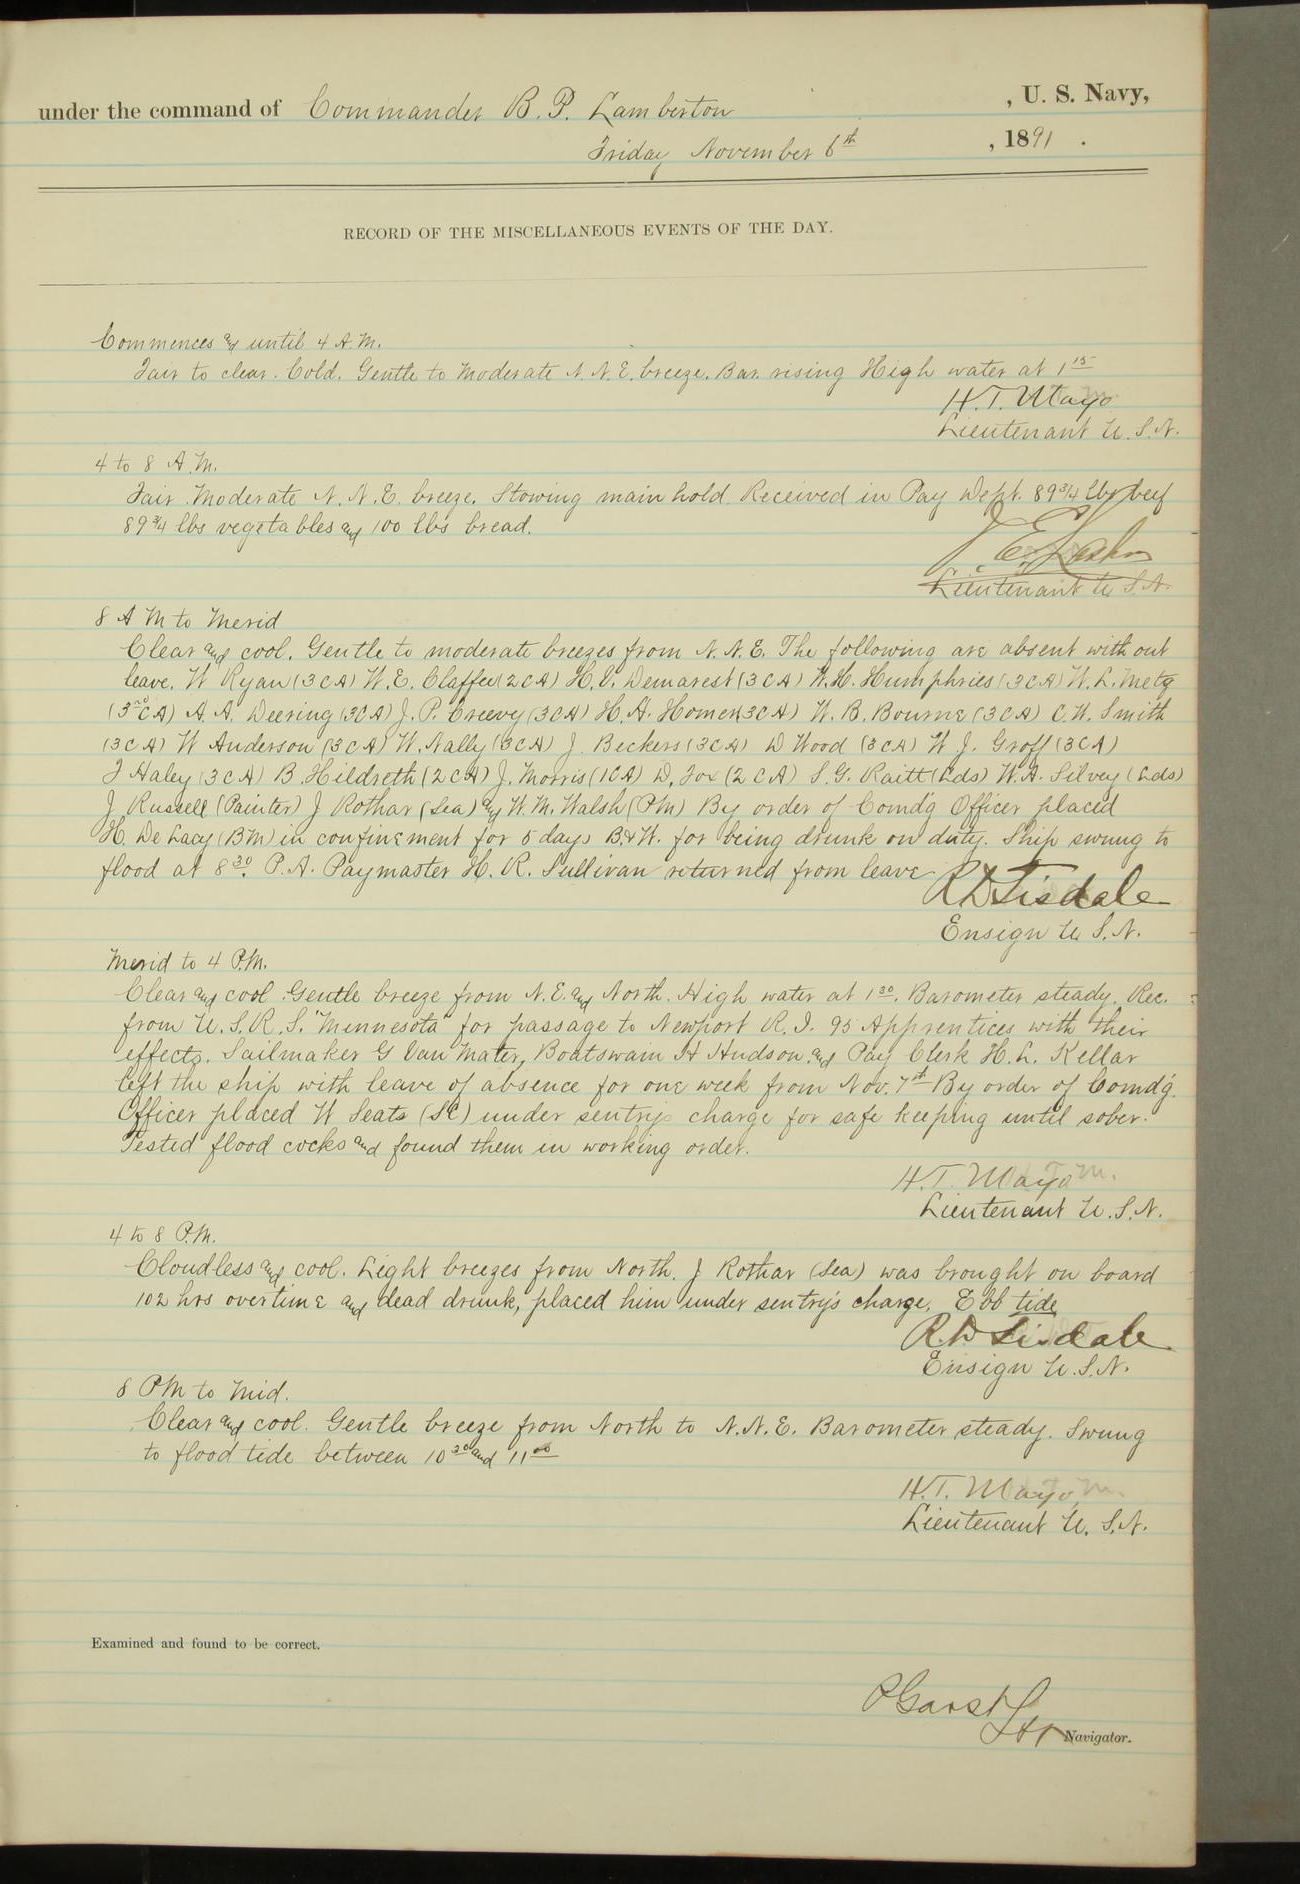 under the command of Commander B. P. Lamberton , U. S. Navy,
Friday November 6th , 1891 .
RECORD OF THE MISCELLANEOUS EVENTS OF THE DAY.
Commences and until 4 A.M.
Fair to clear. Cold. Gentle to Moderate N. N. E. breeze. Bar. rising High water at 1 15
H. T. Mayo
Lieutenant U. S. N.
4 to 8 A.M.
Fair Moderate N. N. E. breeze. Stowing main hold. Received in Pay Dept. 89 3/4 lbs beef
89 3/4 lbs vegetables and 100 lbs bread.
Lieutenant U. S. N.
8 A M to Merid
Clear and cool. Gentle to moderate breezes from N. N. E. The following are absent without
leave. W Ryan (3 C A) W. E. Claffee (2 C A) H. V. Demarest (3 C A) W. H. Humphries (3 C A) W. L. Metz
(3rd C A) A. A. Deering (3 C A) J. P. Creevy (3 C A) H. A. Homer (3 C A) W. B. Bourne (3 C A) C. W. Smith
(3 C A) W Anderson (3 C A) W. Nally (3 C A) J. Beckers (3 C A) D Wood (3 C A) W J. Groff (3 C A)
J Haley (3 C A) B. Hildreth (2 C A) J. Morris (1 C A) D. Fox (2 C A) S. G. Raitt (Lds) W. A. Silvey (Lds)
J Russell (Painter) J Rothar (Sea) and W. M. Walsh (P M) By order of Comd'g Officer placed
H. De Lacy (B M) in confinement for 5 days B & W. for being drunk on duty. Ship swung to
flood at 8 30. P. A. Paymaster H. R. Sullivan returned from leave
R D Tisdale
Ensign U. S. N.
Merid to 4 P.M.
Clear and cool. Gentle breeze from N. E. and North. High water at 1 30. Barometer steady. Rec.
from U. S. R. S. "Minnesota" for passage to Newport R. I. 95 Apprentices with their
effects. Sailmaker G Van Mater, Boatswain H Hudson and Pay Clerk H. L. Kellar
left the ship with leave of absence for one week from Nov. 7th By order of Comd'g
Officer placed W Seats (SC) under sentry's charge for safe keeping until sober.
Tested flood cocks and found them in working order.
H. T. Mayo
Lieutenant U. S. N.
4 to 8 P.M.
Cloudless and cool. Light breezes from North. J Rothar (Sea) was brought on board
102 hrs overtime and dead drunk, placed him under sentry's charge. Ebb tide
R. D Tisdale
Ensign U. S. N.
8 P M to Mid.
Clear and cool. Gentle breeze from North to N. N. E. Barometer steady. Swung
to flood tide between 10 30 and 11 00
H. T. Mayo
Lieutenant U. S. N.
Examined and found to be correct.
P Garst
Lt Navigator.